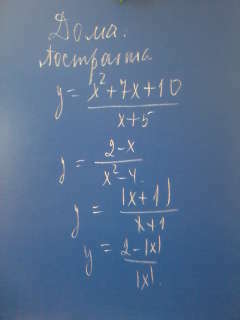 Дома.
Построить
y = x²+7x+10 / x+5
y = 2-x / x²-4.
y = |x+1| / x+1
y = 2-|x| / |x|.